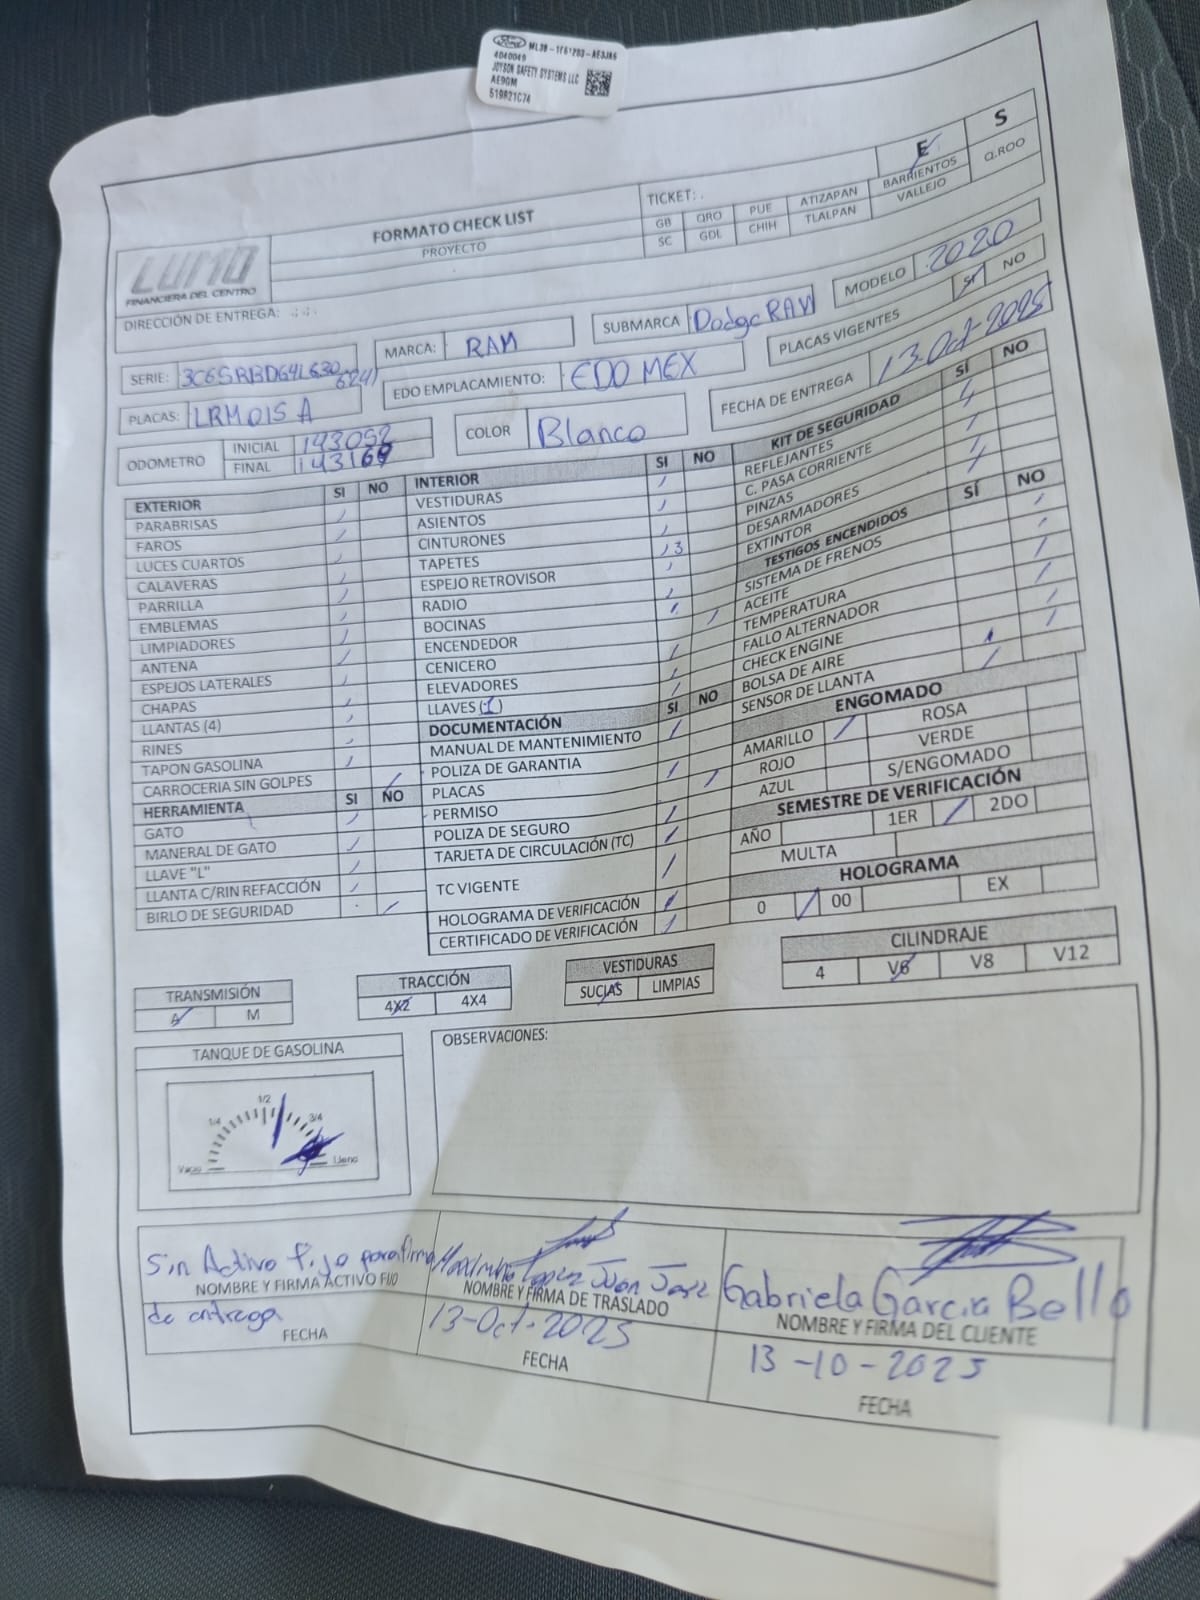 Ford ML3B-1F61203-AE3JA6
4040049
JOYSON SAFETY SYSTEMS LLC
AE9GM
519821C74
E S
LUMO
FINANCIERA DEL CENTRO
FORMATO CHECK LIST
PROYECTO
TICKET:
GB QRO PUE ATIZAPAN BARRIENTOS Q.ROO
SC GDL CHIH TLALPAN VALLEJO
DIRECCIÓN DE ENTREGA:
MARCA: RAM
SUBMARCA Dodge RAM
MODELO 2020
SERIE: 3C6SRBDG4LG30
6241
EDO EMPLACAMIENTO: EDO MEX
PLACAS VIGENTES SI NO
PLACAS: LRM015A
COLOR Blanco
FECHA DE ENTREGA 13-Oct-2025
ODOMETRO INICIAL 143052
FINAL 143169
EXTERIOR SI NO
PARABRISAS
FAROS
LUCES CUARTOS
CALAVERAS
PARRILLA
EMBLEMAS
LIMPIADORES
ANTENA
ESPEJOS LATERALES
CHAPAS
LLANTAS (4)
RINES
TAPON GASOLINA
CARROCERIA SIN GOLPES
HERRAMIENTA SI NO
GATO
MANERAL DE GATO
LLAVE "L"
LLANTA C/RIN REFACCIÓN
BIRLO DE SEGURIDAD
INTERIOR SI NO
VESTIDURAS
ASIENTOS
CINTURONES
TAPETES 3
ESPEJO RETROVISOR
RADIO
BOCINAS
ENCENDEDOR
CENICERO
ELEVADORES
LLAVES (1)
DOCUMENTACIÓN SI NO
MANUAL DE MANTENIMIENTO
POLIZA DE GARANTIA
PLACAS
PERMISO
POLIZA DE SEGURO
TARJETA DE CIRCULACIÓN (TC)
TC VIGENTE
HOLOGRAMA DE VERIFICACIÓN
CERTIFICADO DE VERIFICACIÓN
KIT DE SEGURIDAD SÍ NO
REFLEJANTES
C. PASA CORRIENTE
PINZAS
DESARMADORES
EXTINTOR
TESTIGOS ENCENDIDOS SÍ NO
SISTEMA DE FRENOS
ACEITE
TEMPERATURA
FALLO ALTERNADOR
CHECK ENGINE
BOLSA DE AIRE
SENSOR DE LLANTA
ENGOMADO
AMARILLO ROSA
ROJO VERDE
AZUL S/ENGOMADO
SEMESTRE DE VERIFICACIÓN
AÑO 1ER 2DO
MULTA
HOLOGRAMA
0 00 EX
TRANSMISIÓN
A M
TRACCIÓN
4X2 4X4
VESTIDURAS
SUCIAS LIMPIAS
CILINDRAJE
4 V6 V8 V12
TANQUE DE GASOLINA
1/4 1/2 3/4
Vacio Lleno
OBSERVACIONES:
Sin Activo fijo para firma
NOMBRE Y FIRMA ACTIVO FIJO
de entrega
FECHA
Lopez Juan Jose
NOMBRE Y FIRMA DE TRASLADO
13-Oct-2025
FECHA
Gabriela Garcia Bello
NOMBRE Y FIRMA DEL CLIENTE
13-10-2025
FECHA